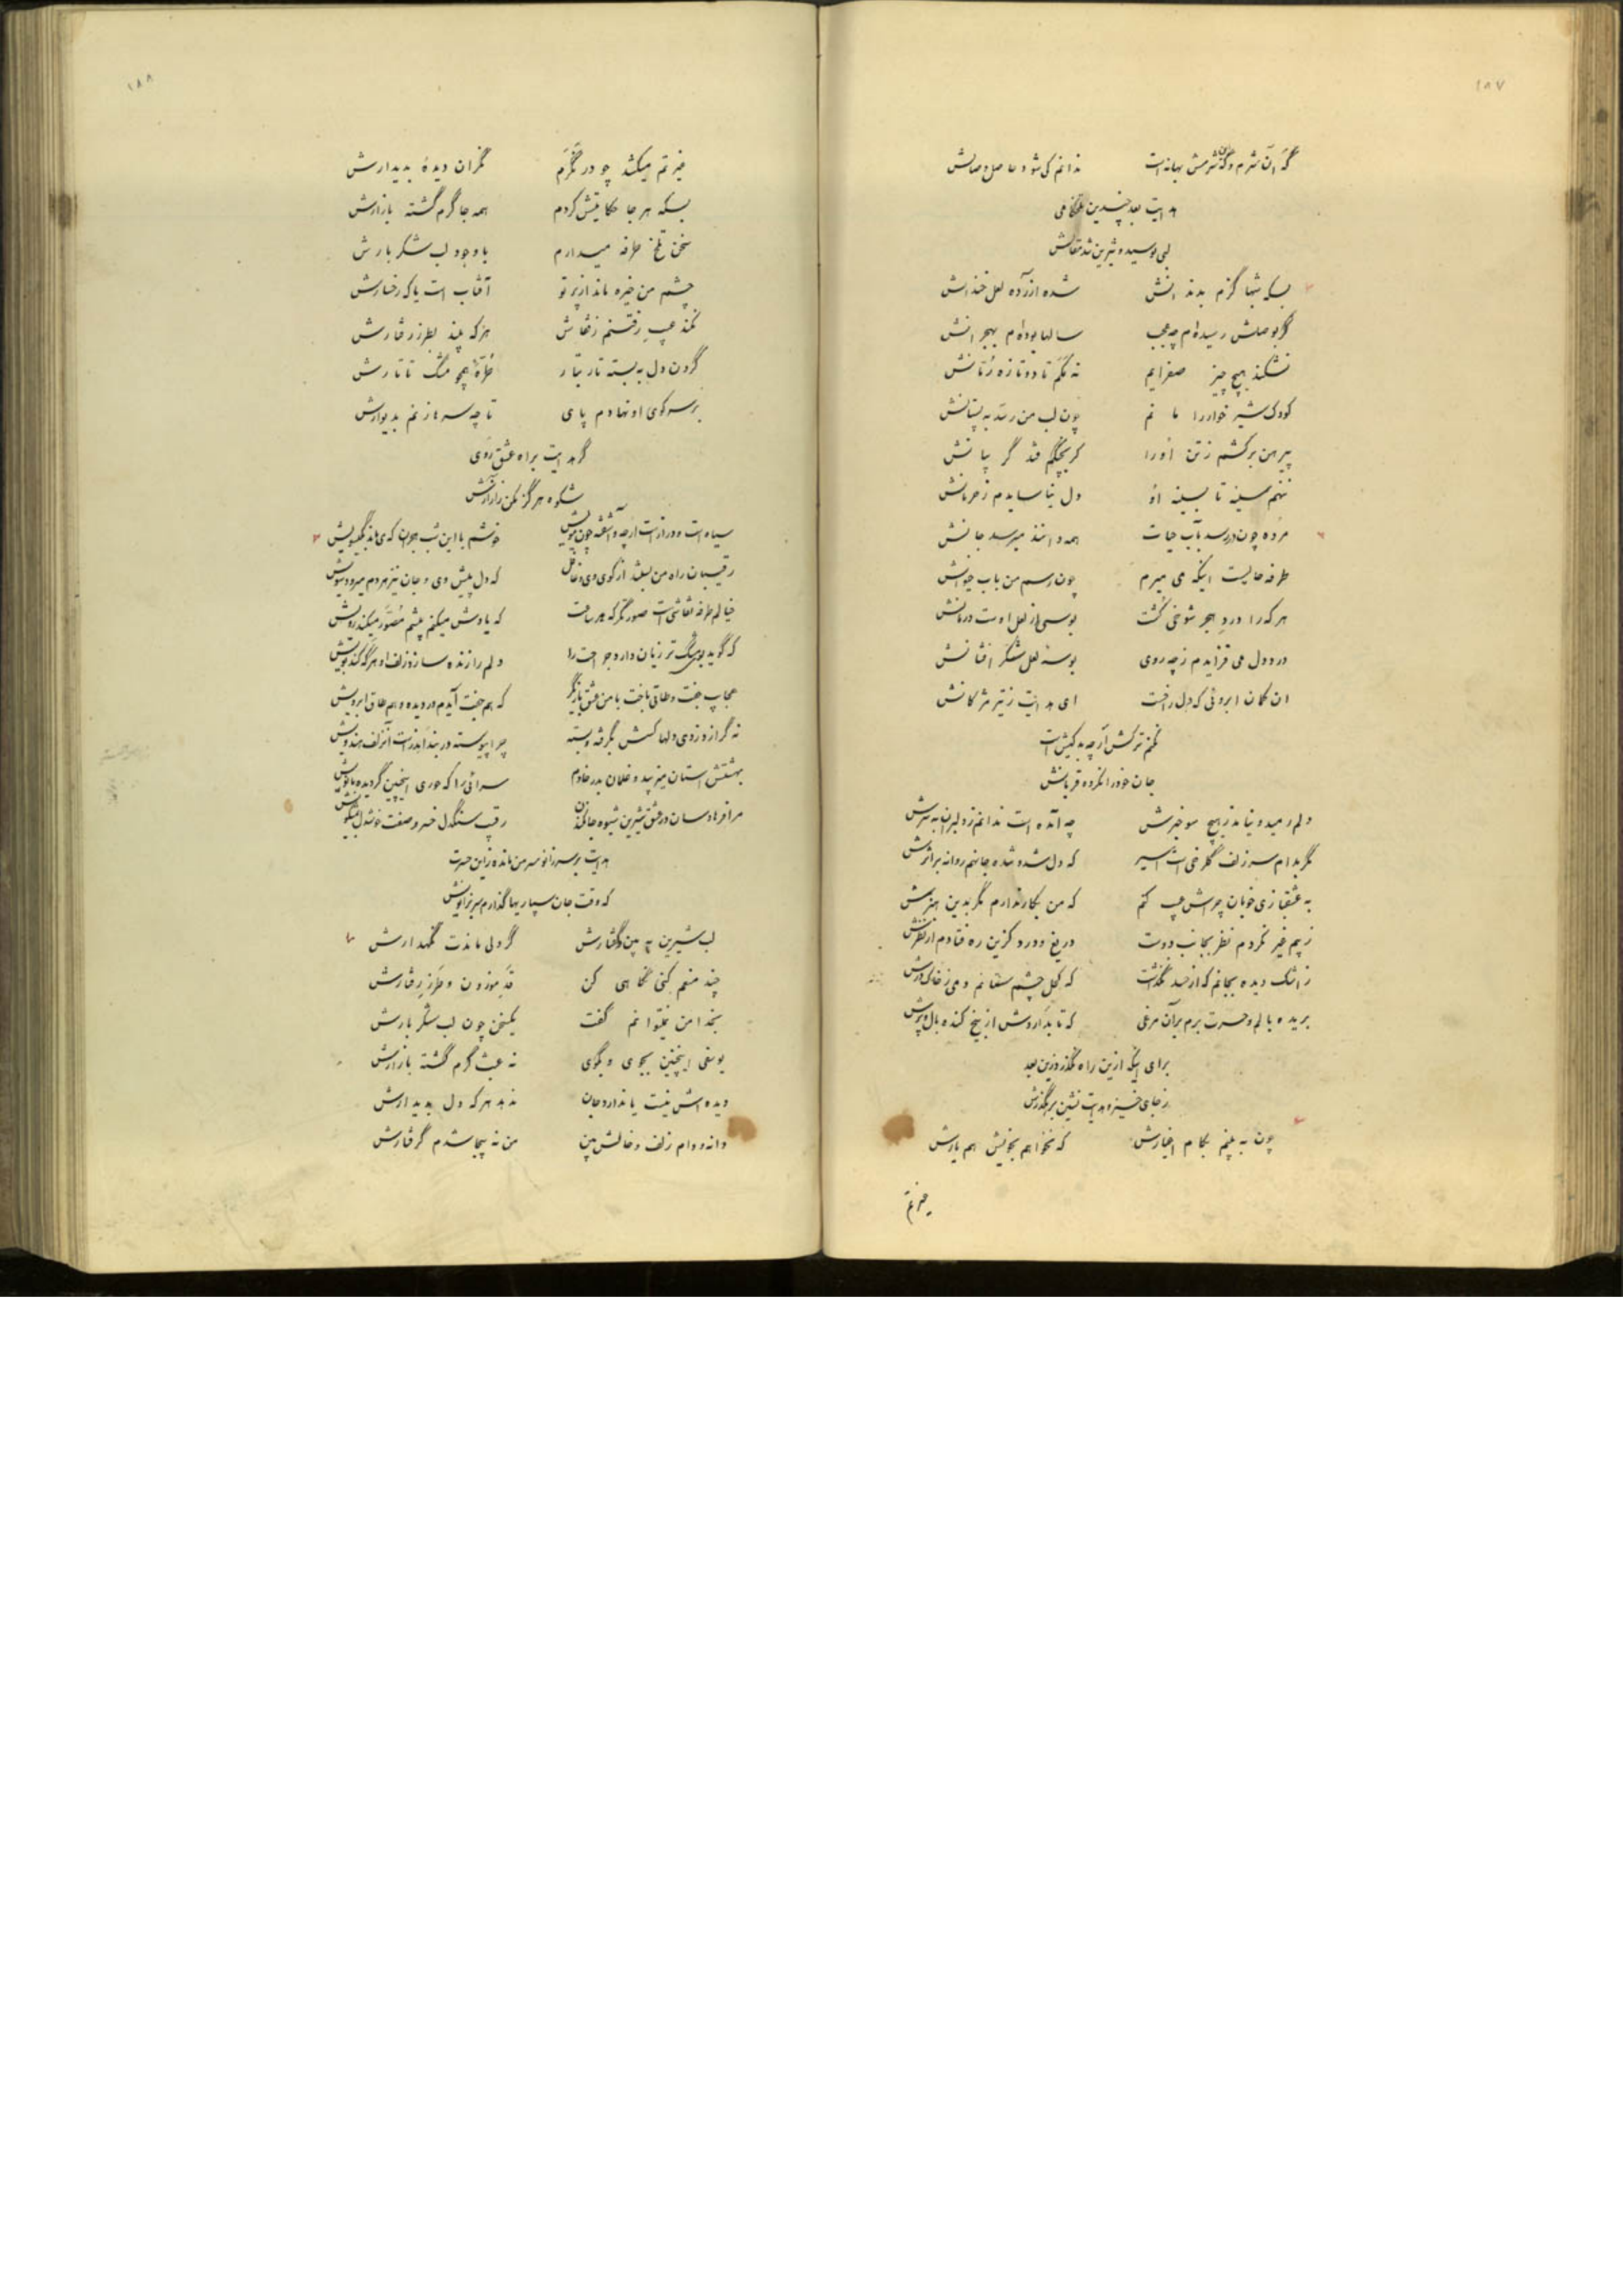 ۱۸۷
گه آن شرم و گه شرمش بهانه است ندانم کی شود حاصل وصالش
هدایت بعد چندین تلخکامی
لبی بوسید و شیرین شد مقالش
بسکه شبها گزم بدندانش شده آزرده لعل خندانش
گر بوصلش رسیده‌ام چه عجب سالها بوده‌ام بهجرانش
نشکند هیچ چیز صفرایم نه مکم تا دو تازه رمانش
کودک شیر خوار را مانم چون لب من رسد به پستانش
پیرهن برکشم ز تن او را گر بچنگم فتد گریبانش
ننهم سینه تا بسینه او دل نیاساید م ز حرمانش
مرده چون در رسد بآب حیات همه دانند میرسد جانش
طرفه حالیست اینکه می میرم چون رسم من بآب حیوانش
هر که را درد هجر شوخی کشت بوسی از لعل اوست درمانش
درد دل می فزاید م ز چه روی بوسه لعل شکر افشانش
ان کمان ابروئی که دل را خست ای هدایت ز تیر مژکانش
نکنم ترکش ار چه بد کیش است
جان خود را نکرده قربانش
دلم رمید و نیامد ز هیچ سو خبرش چه آمده است ندانم ز دلبران به سرش
مگر بدام سر زلف گلرخی است اسیر که دل شد و شده جانم روانه بر اثرش
به عشقبازی خوبان چراش عیب کنم که من بکار ندارم مگر بدین هنرش
ز بیم غیر نکردم نظر بجانب دوست دریغ و درد کزین ره فتادم از نظرش
ز اشک دیده بجانم که از حسد نگذاشت که کحل چشم ستانم دمی ز خاک درش
بریده بالم و حسرت برم بر آن مرغی که تا بداروش از بیخ کنده بال و پرش
برای اینکه ازین راه نگذرد زین بعد
ز جای خیز و هدایت نشین برهگذرش
چون به بینم بکام اغیارش که نخواهم بخویش هم یارش
غیرتم
۱۸۸
غیرتم میکشد چو در نگرم نگران دیدهٔ بدیدارش
بسکه هر جا حکایتش کردم همه جا گرم گشته بازارش
سخن تلخ طرفه میدارم با وجود لب شکر بارش
چشم من خیره ماند از پرتو آفتاب است یا که رخسارش
نکند عیب رفتنم ز قفاش هر که بیند بطرز رفتارش
گردن دل به بسته تار بتار طرّهٔ همچو مشگ تاتارش
بر سر کوی او نهادم پای تا چه سرها زنم بدیوارش
گر هدایت براه عشق روی
شکوه هرگز مکن ز آزارش
سیاه است و دراز است ار چه و آشفته چون مویش خوشم با این شب هجران که می‌ماند بگیسویش
رقیبان راه من بستند از کوی وی و غافل که دل پیش وی و جان نیز هر دم میرود سویش
خیالم طرفه نقاشی است صورتگر که هر ساعت که یادش میکنم پیشم مصوّر میکند رویش
که گوید بوی مشگ تر زیان دارد جراحت را دلم را زنده سازد زلف او هر گه کند بویش
عجایب جفت و طاقی باخت با من عشق بازیگر که هم جفت آیدم در دیده و هم طاق ابرویش
نه گر از دزدی دلها کسش بگرفته و بسته چرا پیوسته در بند اندر است آن زلف هندویش
بهشتش استان میزیبد و غلمان بدر خادم سرائی را که حوری اینچنین گردیده بانویش
مرا فرهاد سان در عشق شیرین شیوه جان کندن رقیب سنگدل خسرو صفت خوشدل بمشکویش
هدایت بر سر زانو سر من مانده زاین حسرت
که وقت جان سپاریها گذارم سر بزانویش
لب شیرین به بین و گفتارش گر دلی ماندت نگهدارش
چند منعم کنی نگاهی کن قد موزون و طرز رفتارش
بخدا من نمیتوانم گفت یکسخن چون لب شکر بارش
یوسفی اینچنین بجوی و بگوی نه عبث گرم گشته بازارش
دیده‌اش نیست یا ندارد جان ندهد هر که دل بدیدارش
دانه و دام زلف و خالش بین من نه بیجا شدم گرفتارش